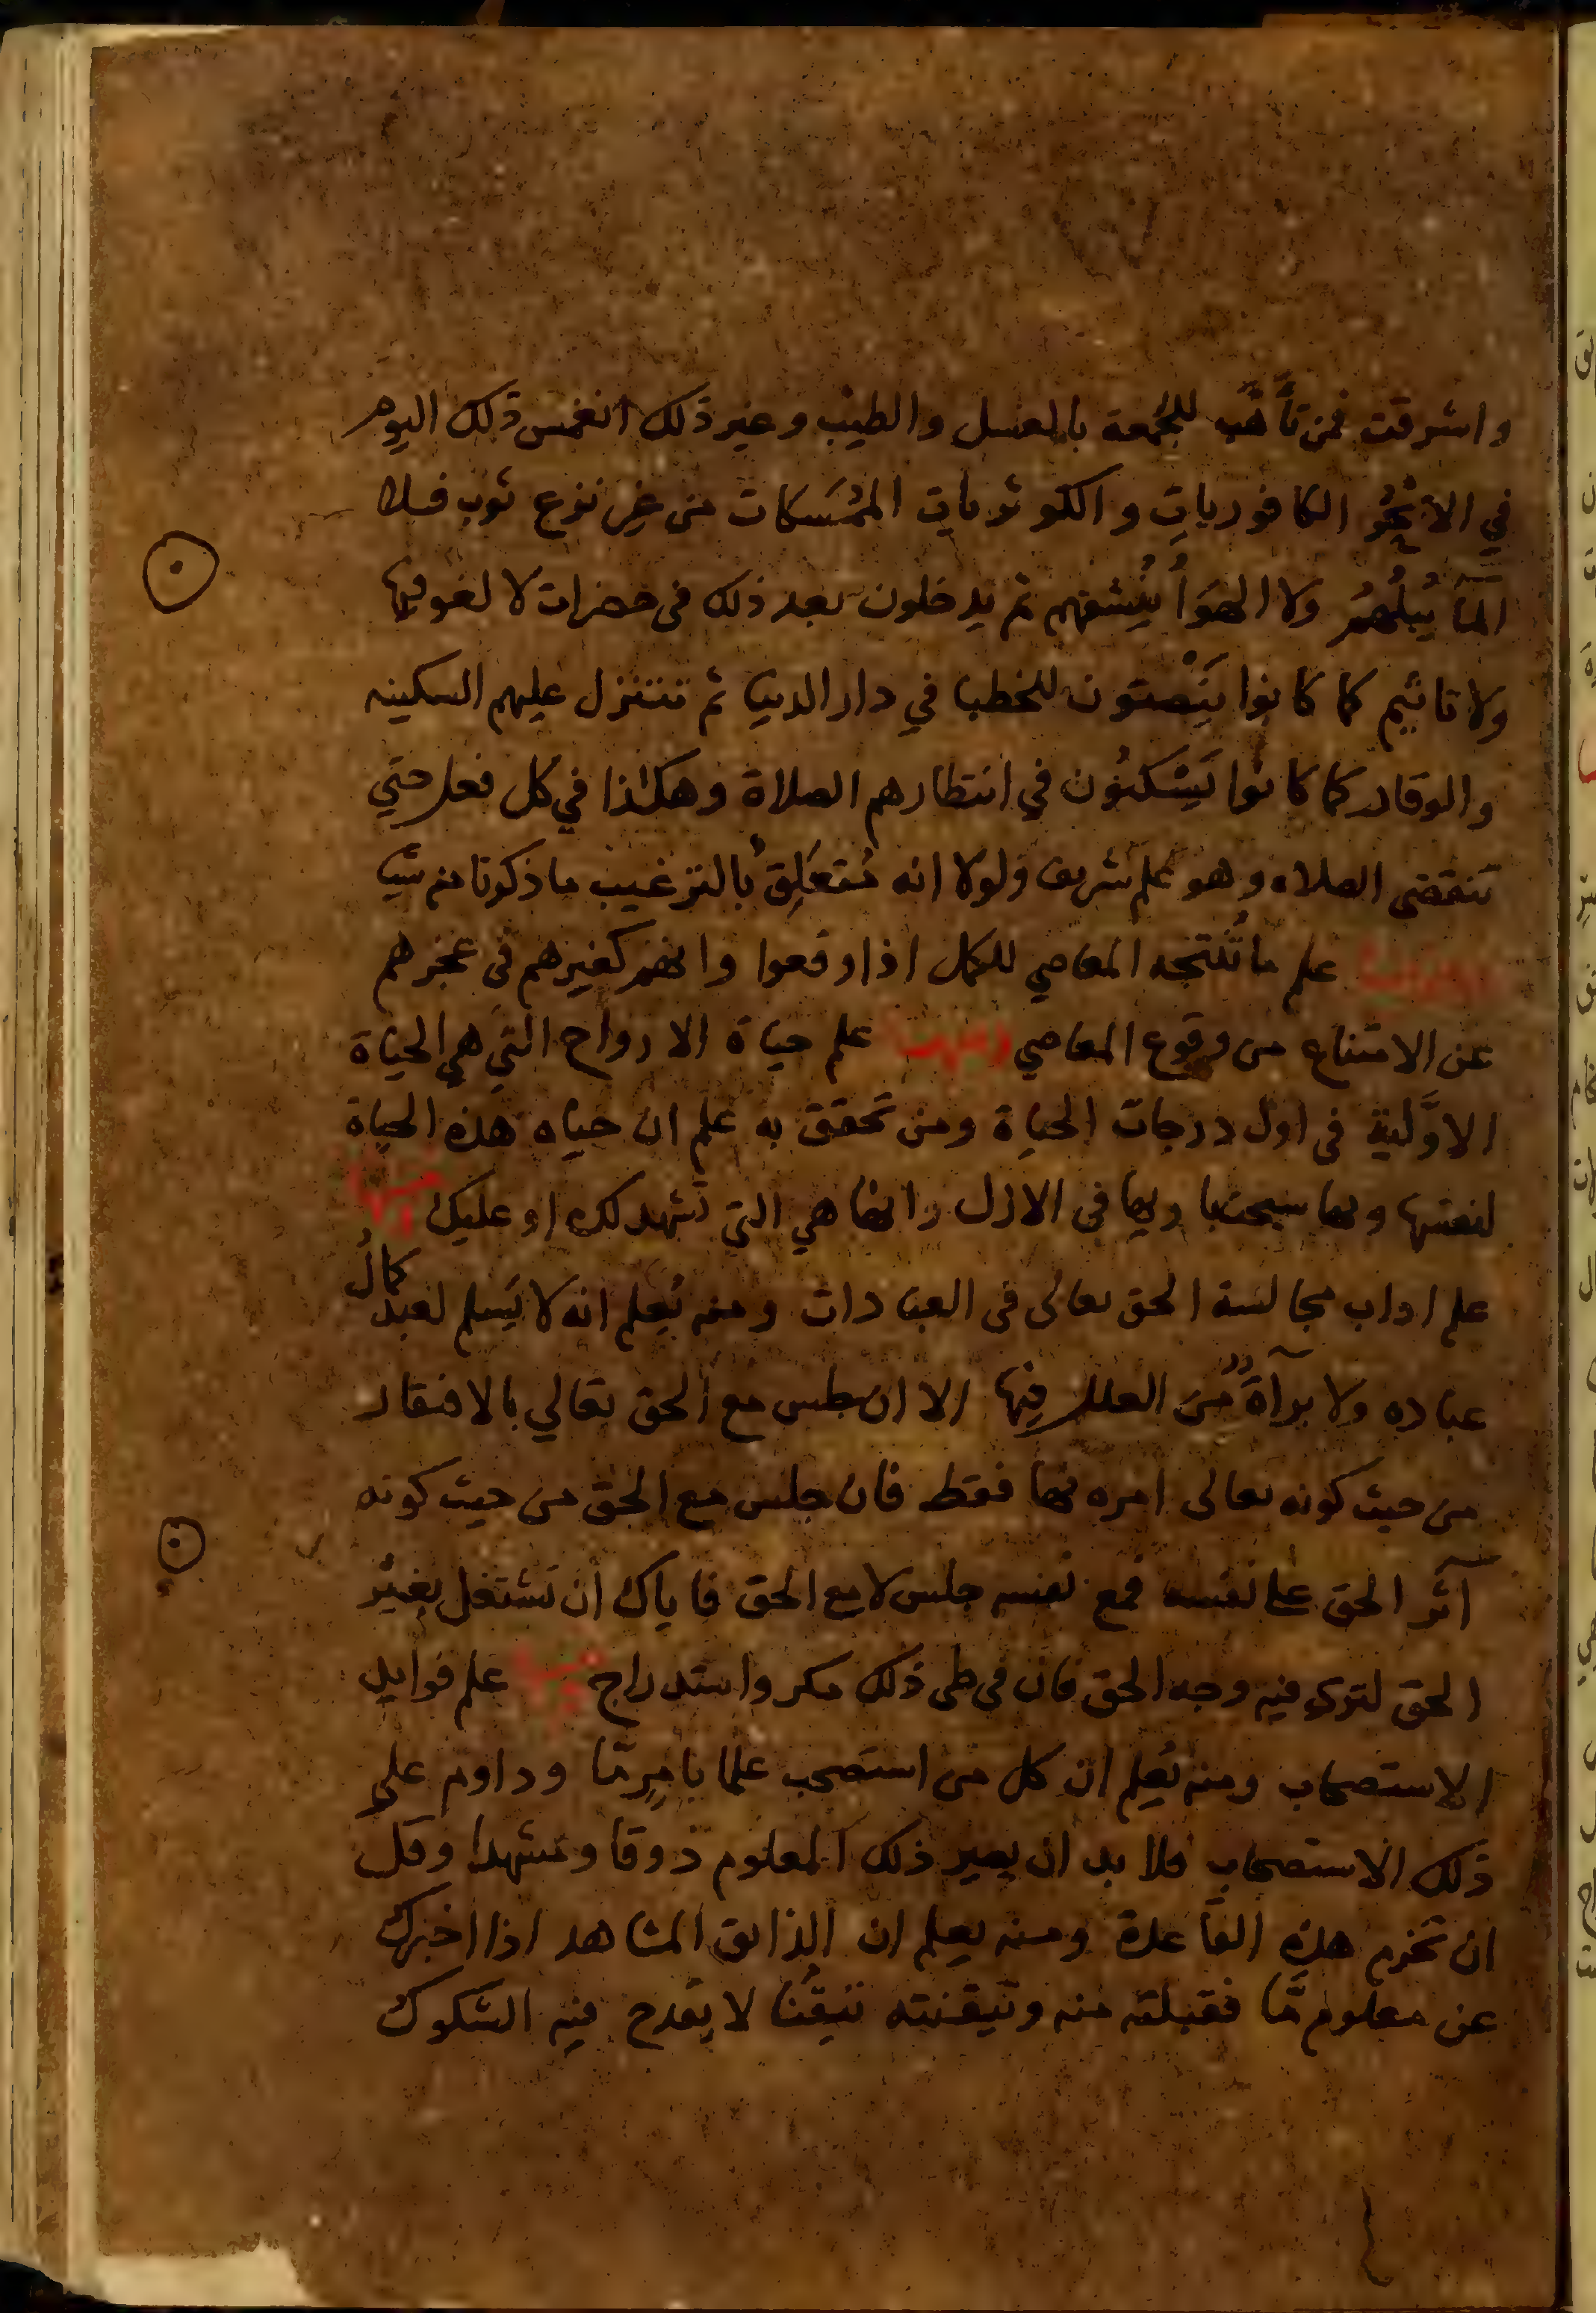 واشرقت فمن تأهّب للجُمعة بالغسل والطيب وغير ذلك انغمس ذلك اليوم
في الابْحُر الكافوريات والكوثريات الممُسَّكات من غير نزع ثوب فلا
المآ يُبلُّهُم ولا الهوآ يُنشفهم ثم يدخلون بعد ذلك في حضرات لا لغو فيها
ولا تاثيم كما كانوا يَنْصتون للخطبا في دار الدنيا ثم تتنزل عليهم السكينه
والوقار كما كانوا يَسْكنُون في انتظارهم الصلاة وهكذا في كل فعل حتي
تنقضي الصلاه وهو علم شريف ولولا انه مُتعَلِق بالترغيب ما ذكرنا منه شيا
علم ما تُنتجه المعاصي للكمل اذا وقعوا وانهم كغيرهم في عجزهم
عن الامتناع من وقوع المعاصي ومنها علم حياة الارواح التي هي الحياة
الاوَّلية في اول درجات الحياة ومن تحقق به علم ان حياه هذه الحياة
لنفسها وبها سبحت ربها في الازل وانها هي التي تشهد لك او عليك ومنها
علم اداب مجالسة الحق تعالى في العبادات ومنه يُعلم انه لا يَسلم لعبد كمالُ
عباده ولا برآةٌ من العلل فيها الا ان جلس مع الحق تعالي بالافتقار
من حيث كونه تعالى امره بها فقط فان جلس مع الحق من حيث كونه
آثر الحق على نفسه فمع نفسه جلس لا مع الحق فاياك ان تشتغل بغير
الحق لترى فيه وجه الحق فان في طي ذلك مكر واستدراج ومنها علم فوايد
الاستصحاب ومنه يُعلم ان كل من استصحب علما بامرٍ مّا وداوم علي
ذلك الاستصحاب فلا بد ان يصير ذلك المعلوم ذوقا ومشهدا وقل
ان تخرم هذه القاعدة ومنه يعلم ان الذايق المشاهد اذا اخبرك
عن معلوم مّا فقبلته منه وتيقنته تيقُّنا لا يقدح فيه الشكوك